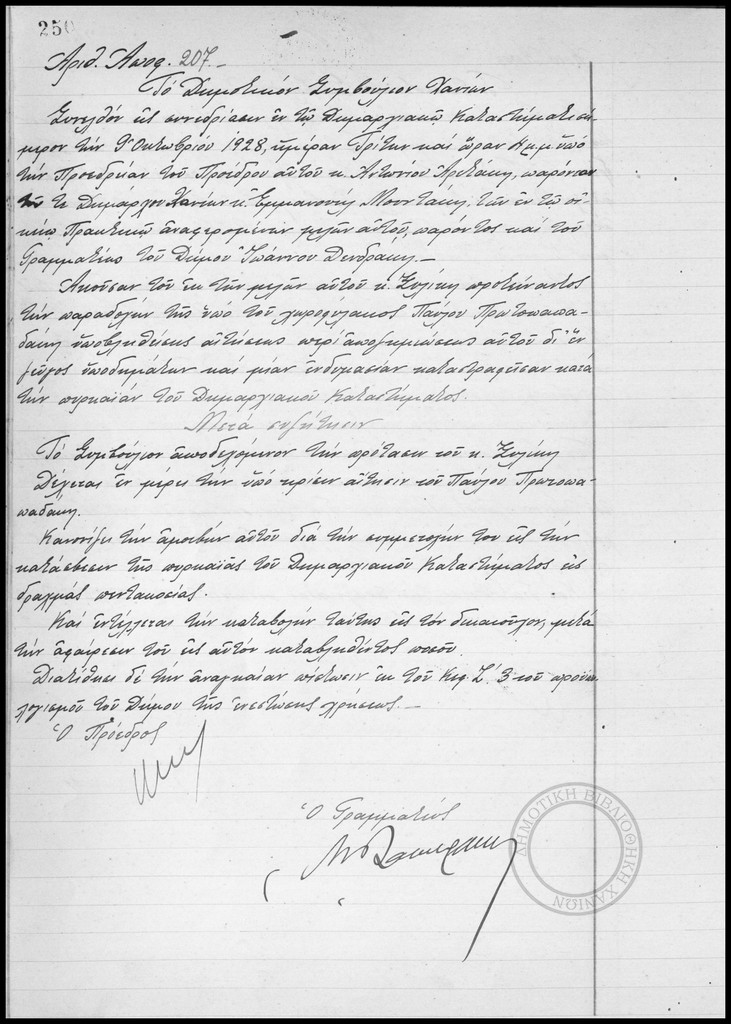 250
Αριθ. Αποφ. 207.-
Τὸ Δημοτικὸν Συμβούλιον Χανίων
Συνελθὸν εἰς συνεδρίασιν ἐν τῷ Δημαρχιακῷ Καταστήματι σή-
μερον τὴν 9ην Ὀκτωβρίου 1928, ἡμέραν Τρίτην καὶ ὥραν μ.μ. ὑπὸ
τὴν Προεδρείαν τοῦ Προέδρου αὐτοῦ κ. Ἀντωνίου παρόντων
τοῦ τε Δημάρχου Χανίων κ. Ἐμμανουὴλ Μουντάκη, τῶν ἐν τῷ οἰ-
κείῳ Πρακτικῷ ἀναφερομένων μελῶν αὐτοῦ, παρόντος καὶ τοῦ
Γραμματέως τοῦ Δήμου Ἰωάννου Δενδράκη.-
Ἀκοῦσαν τοῦ ἐκ τῶν μελῶν αὐτοῦ κ. Ξυλίκη προτείναντος
τὴν παραδοχὴν τῆς ὑπὸ τοῦ χωροφύλακος Παύλου Πρωτοπαπα-
δάκη ὑποβληθείσης αἰτήσεως περὶ ἀποζημιώσεως αὐτοῦ δι' ἓν
ζεῦγος ὑποδημάτων καὶ μίαν ἐνδυμασίαν καταστραφεῖσαν κατὰ
τὴν πυρκαϊὰν τοῦ Δημαρχιακοῦ Καταστήματος.
Μετὰ συζήτησιν
Τὸ Συμβούλιον ἀποδεχόμενον τὴν πρότασιν τοῦ κ. Ξυλίκη
Δέχεται ἐν μέρει τὴν ὑπὸ κρίσιν αἴτησιν τοῦ Παύλου Πρωτοπα-
παδάκη.
Κανονίζει τὴν ἀμοιβὴν αὐτοῦ διὰ τὴν συμμετοχήν του εἰς τὴν
κατάσβεσιν τῆς πυρκαϊᾶς τοῦ Δημαρχιακοῦ Καταστήματος εἰς
δραχμὰς πεντακοσίας.
Καὶ ἐντέλλεται τὴν καταβολὴν ταύτης εἰς τὸν δικαιοῦχον, μετὰ
τὴν ἀφαίρεσιν τοῦ εἰς αὐτὸν καταβληθέντος ποσοῦ.
Διατίθησι δὲ τὴν ἀναγκαίαν πίστωσιν ἐκ τοῦ Κεφ. Ζ' 3 τοῦ προϋπο-
λογισμοῦ τοῦ Δήμου τῆς ἐνεστώσης χρήσεως.-
Ὁ Πρόεδρος
Ὁ Γραμματεὺς
ΔΗΜΟΤΙΚΗ ΒΙΒΛΙΟΘΗΚΗ ΧΑΝΙΩΝ